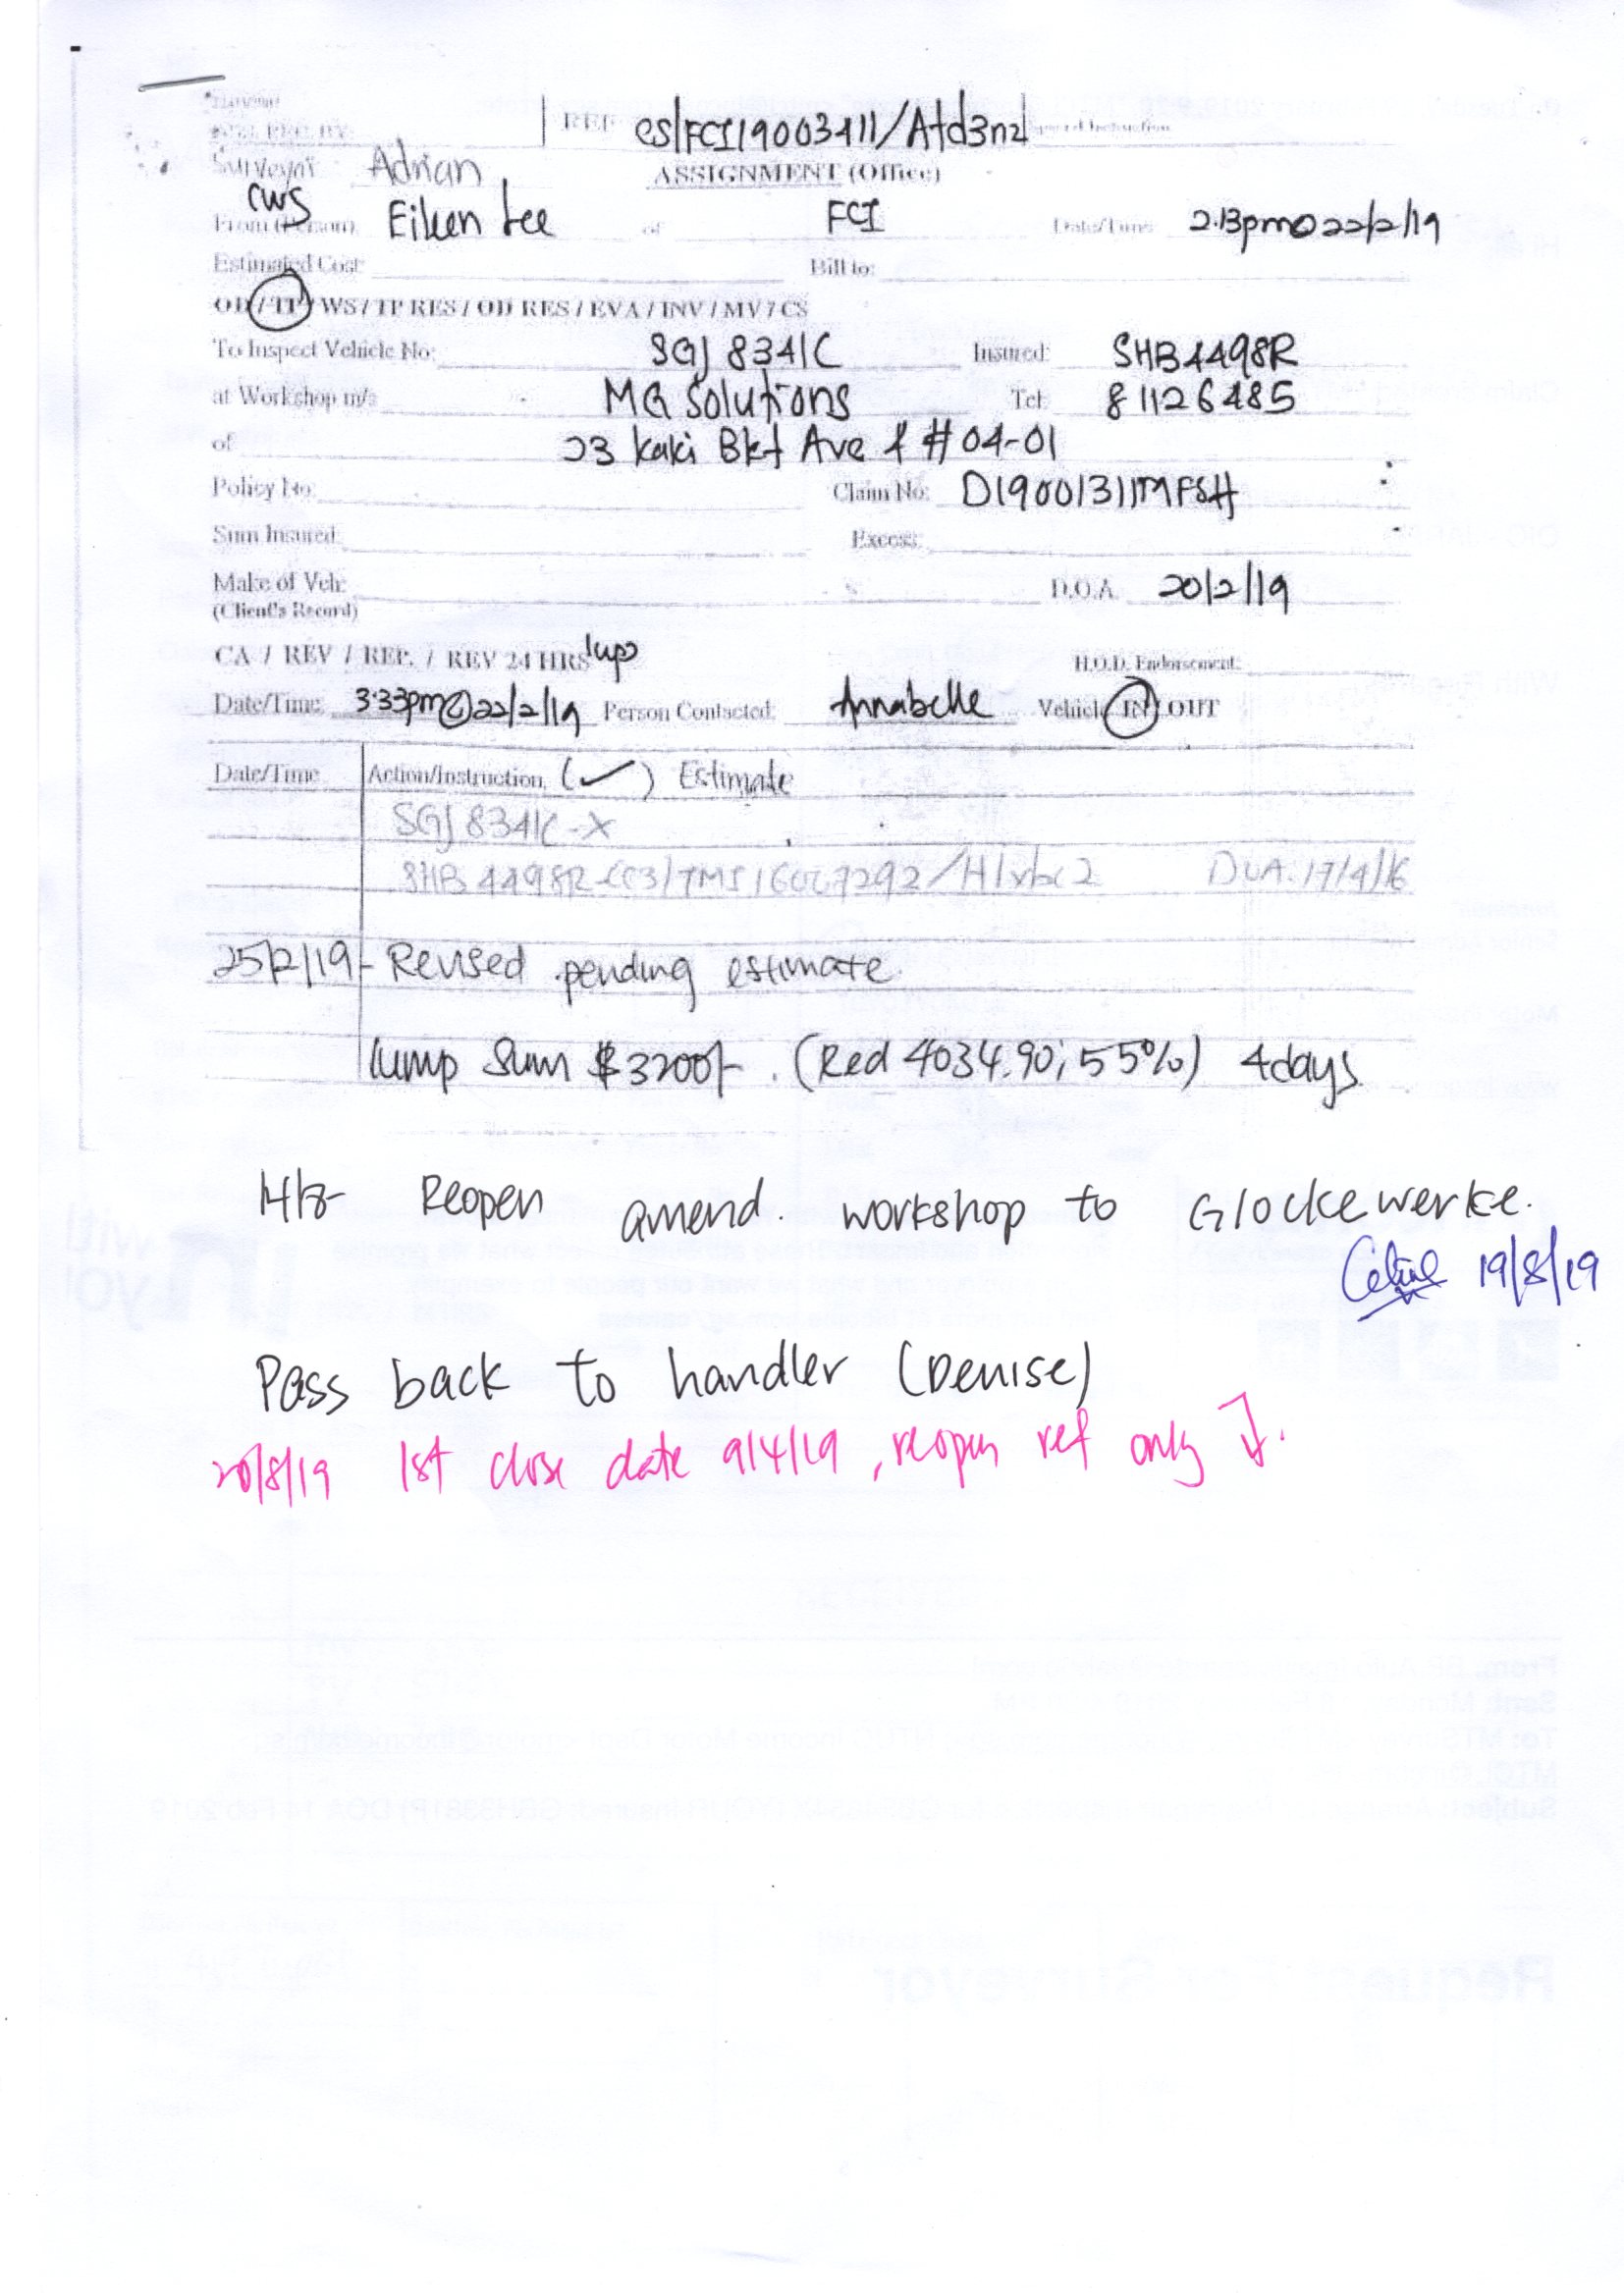 REF cs/FCI19003411/Atd3n2
Surveyor Adrian ASSIGNMENT (Office)
CWS
From (Person) Eileen Lee of FCI Date/Time: 2.13pm@22/2/19
Estimated Cost: Bill to:
OD / TP / WS / TP RES / OD RES / EVA / INV / MV / CS
To Inspect Vehicle No: SGJ 8341C Insured: SHB4498R
at Workshop m/s MG Solutions Tel: 81126485
of 23 Kaki Bkt Ave 4 #04-01
Policy No: Claim No: D19001311MFSH
Sum Insured: Excess:
Make of Veh: D.O.A. 20/2/19
(Client's Record)
CA / REV / REP. / REV 24 HRS lup H.O.D. Endorsement:
Date/Time: 3.33pm@22/2/19 Person Contacted: Annabelle Vehicle IN / OUT
Date/Time Action/Instruction (✓) Estimate
SGJ 8341C-X
SHB 4498R DOA. 17/4/16
25/2/19- Revised pending estimate
Lump Sum $3200/-. (Red 4034.90; 55%) 4days
Reopen amend. workshop to Glockewerke.
19/8/19
Pass back to handler (Denise)
20/8/19 1st close date 9/4/19, reopen ref only